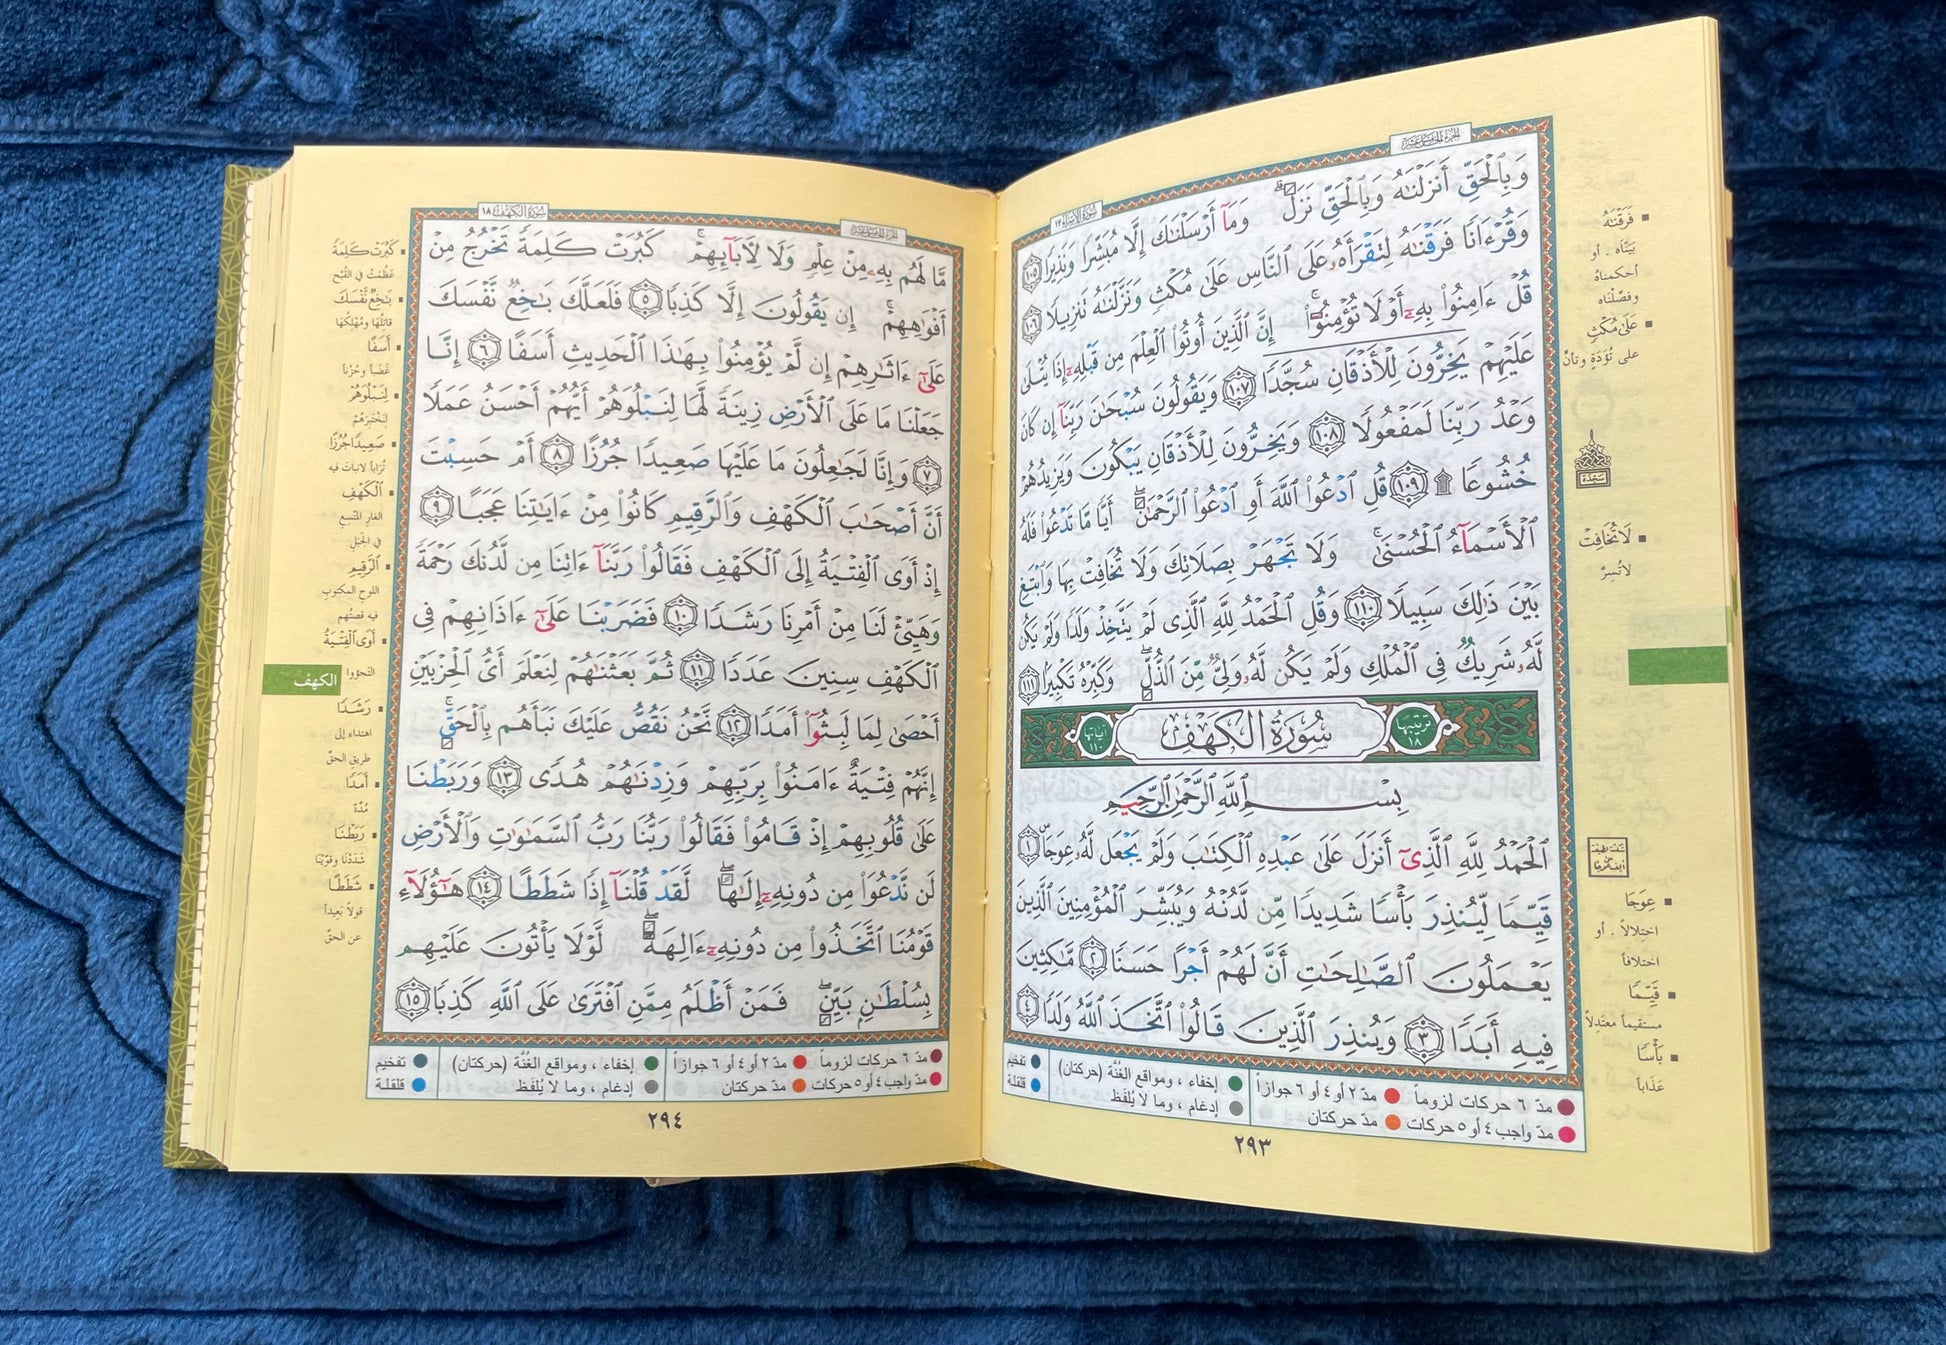 الجزء الخامس عشر
سورة الإسراء ١٧
وَبِالْحَقِّ أَنزَلْنَٰهُ وَبِالْحَقِّ نَزَلَ ۗ وَمَآ أَرْسَلْنَٰكَ إِلَّا مُبَشِّرًا وَنَذِيرًا ١٠٥
وَقُرْءَانًا فَرَقْنَٰهُ لِتَقْرَأَهُۥ عَلَى النَّاسِ عَلَىٰ مُكْثٍ وَنَزَّلْنَٰهُ تَنزِيلًا ١٠٦
قُلْ ءَامِنُوا۟ بِهِۦٓ أَوْ لَا تُؤْمِنُوٓا۟ ۚ إِنَّ الَّذِينَ أُوتُوا۟ الْعِلْمَ مِن قَبْلِهِۦٓ إِذَا يُتْلَىٰ
عَلَيْهِمْ يَخِرُّونَ لِلْأَذْقَانِ سُجَّدًا ١٠٧ وَيَقُولُونَ سُبْحَٰنَ رَبِّنَآ إِن كَانَ
وَعْدُ رَبِّنَا لَمَفْعُولًا ١٠٨ وَيَخِرُّونَ لِلْأَذْقَانِ يَبْكُونَ وَيَزِيدُهُمْ
خُشُوعًا ۩ ١٠٩ قُلِ ادْعُوا۟ اللَّهَ أَوِ ادْعُوا۟ الرَّحْمَٰنَ ۖ أَيًّا مَّا تَدْعُوا۟ فَلَهُ
الْأَسْمَآءُ الْحُسْنَىٰ ۚ وَلَا تَجْهَرْ بِصَلَاتِكَ وَلَا تُخَافِتْ بِهَا وَابْتَغِ
بَيْنَ ذَٰلِكَ سَبِيلًا ١١٠ وَقُلِ الْحَمْدُ لِلَّهِ الَّذِى لَمْ يَتَّخِذْ وَلَدًا وَلَمْ يَكُن
لَّهُۥ شَرِيكٌ فِى الْمُلْكِ وَلَمْ يَكُن لَّهُۥ وَلِىٌّ مِّنَ الذُّلِّ ۖ وَكَبِّرْهُ تَكْبِيرًۢا ١١١
ترتيبها ١٨ سُورَةُ الكَهْفِ آياتها ١١٠
بِسْمِ اللَّهِ الرَّحْمَٰنِ الرَّحِيمِ
الْحَمْدُ لِلَّهِ الَّذِىٓ أَنزَلَ عَلَىٰ عَبْدِهِ الْكِتَٰبَ وَلَمْ يَجْعَل لَّهُۥ عِوَجَا ۜ ١
قَيِّمًا لِّيُنذِرَ بَأْسًا شَدِيدًا مِّن لَّدُنْهُ وَيُبَشِّرَ الْمُؤْمِنِينَ الَّذِينَ
يَعْمَلُونَ الصَّٰلِحَٰتِ أَنَّ لَهُمْ أَجْرًا حَسَنًا ٢ مَّٰكِثِينَ
فِيهِ أَبَدًا ٣ وَيُنذِرَ الَّذِينَ قَالُوا۟ اتَّخَذَ اللَّهُ وَلَدًا ٤
فَرَقْنَٰهُ
بَيَّنَّاه . أو
أحكمناهُ
وفصَّلْنَاه
عَلَىٰ مُكْثٍ
على تُؤَدَةٍ وتأنٍّ
سَجْدَة
لَا تُخَافِتْ
لا تُسِرْ
عِوَجَا
اختِلالاً . أو
اختلافاً
قَيِّمًا
مستقيماً معتدِلاً
بَأْسًا
عَذَاباً
مدّ ٦ حركات لزوماً مدّ ٢ أو ٤ أو ٦ جوازاً إخفاء ، ومواقع الغُنَّة (حركتان) تفخيم
مدّ واجب ٤ أو ٥ حركات مدّ حركتان إدغام ، وما لا يُلفَظ قلقلة
٢٩٣
الجزء الخامس عشر
سورة الكهف ١٨
مَّا لَهُم بِهِۦ مِنْ عِلْمٍ وَلَا لِأٓبَآئِهِمْ ۚ كَبُرَتْ كَلِمَةً تَخْرُجُ مِنْ
أَفْوَٰهِهِمْ ۚ إِن يَقُولُونَ إِلَّا كَذِبًا ٥ فَلَعَلَّكَ بَٰخِعٌ نَّفْسَكَ
عَلَىٰٓ ءَاثَٰرِهِمْ إِن لَّمْ يُؤْمِنُوا۟ بِهَٰذَا الْحَدِيثِ أَسَفًا ٦ إِنَّا
جَعَلْنَا مَا عَلَى الْأَرْضِ زِينَةً لَّهَا لِنَبْلُوَهُمْ أَيُّهُمْ أَحْسَنُ عَمَلًا
٧ وَإِنَّا لَجَٰعِلُونَ مَا عَلَيْهَا صَعِيدًا جُرُزًا ٨ أَمْ حَسِبْتَ
أَنَّ أَصْحَٰبَ الْكَهْفِ وَالرَّقِيمِ كَانُوا۟ مِنْ ءَايَٰتِنَا عَجَبًا ٩
إِذْ أَوَى الْفِتْيَةُ إِلَى الْكَهْفِ فَقَالُوا۟ رَبَّنَآ ءَاتِنَا مِن لَّدُنكَ رَحْمَةً
وَهَيِّئْ لَنَا مِنْ أَمْرِنَا رَشَدًا ١٠ فَضَرَبْنَا عَلَىٰٓ ءَاذَانِهِمْ فِى
الْكَهْفِ سِنِينَ عَدَدًا ١١ ثُمَّ بَعَثْنَٰهُمْ لِنَعْلَمَ أَىُّ الْحِزْبَيْنِ
أَحْصَىٰ لِمَا لَبِثُوٓا۟ أَمَدًا ١٢ نَّحْنُ نَقُصُّ عَلَيْكَ نَبَأَهُم بِالْحَقِّ ۚ
إِنَّهُمْ فِتْيَةٌ ءَامَنُوا۟ بِرَبِّهِمْ وَزِدْنَٰهُمْ هُدًى ١٣ وَرَبَطْنَا
عَلَىٰ قُلُوبِهِمْ إِذْ قَامُوا۟ فَقَالُوا۟ رَبُّنَا رَبُّ السَّمَٰوَٰتِ وَالْأَرْضِ
لَن نَّدْعُوَا۟ مِن دُونِهِۦٓ إِلَٰهًا ۖ لَّقَدْ قُلْنَآ إِذًا شَطَطًا ١٤ هَٰٓؤُلَآءِ
قَوْمُنَا اتَّخَذُوا۟ مِن دُونِهِۦٓ ءَالِهَةً ۖ لَّوْلَا يَأْتُونَ عَلَيْهِم
بِسُلْطَٰنٍۭ بَيِّنٍ ۖ فَمَنْ أَظْلَمُ مِمَّنِ افْتَرَىٰ عَلَى اللَّهِ كَذِبًا ١٥
كَبُرَتْ كَلِمَةً
عَظُمَتْ في القُبْح
بَٰخِعٌ نَّفْسَكَ
قاتِلُهَا ومُهْلِكُهَا
أَسَفًا
غَضَباً وحُزْناً
لِنَبْلُوَهُمْ
لِنَخْتَبِرَهُمْ
صَعِيدًا جُرُزًا
تُرَاباً لا نباتَ فيه
الْكَهْفِ
الغارِ المُتّسِعِ
في الجَبَلِ
الرَّقِيمِ
اللوحِ المكتوبِ
فيه قصتُهم
أَوَى الْفِتْيَةُ
التَجَؤوا
الكهف
رَشَدًا
اهتداء إلى
طريقِ الحقّ
أَمَدًا
مُدّةً
رَبَطْنَا
شَدَدْنَا وقوَّيْنَا
شَطَطًا
قولاً بَعِيداً
عن الحقّ
مدّ ٦ حركات لزوماً مدّ ٢ أو ٤ أو ٦ جوازاً إخفاء ، ومواقع الغُنَّة (حركتان) تفخيم
مدّ واجب ٤ أو ٥ حركات مدّ حركتان إدغام ، وما لا يُلفَظ قلقلة
٢٩٤